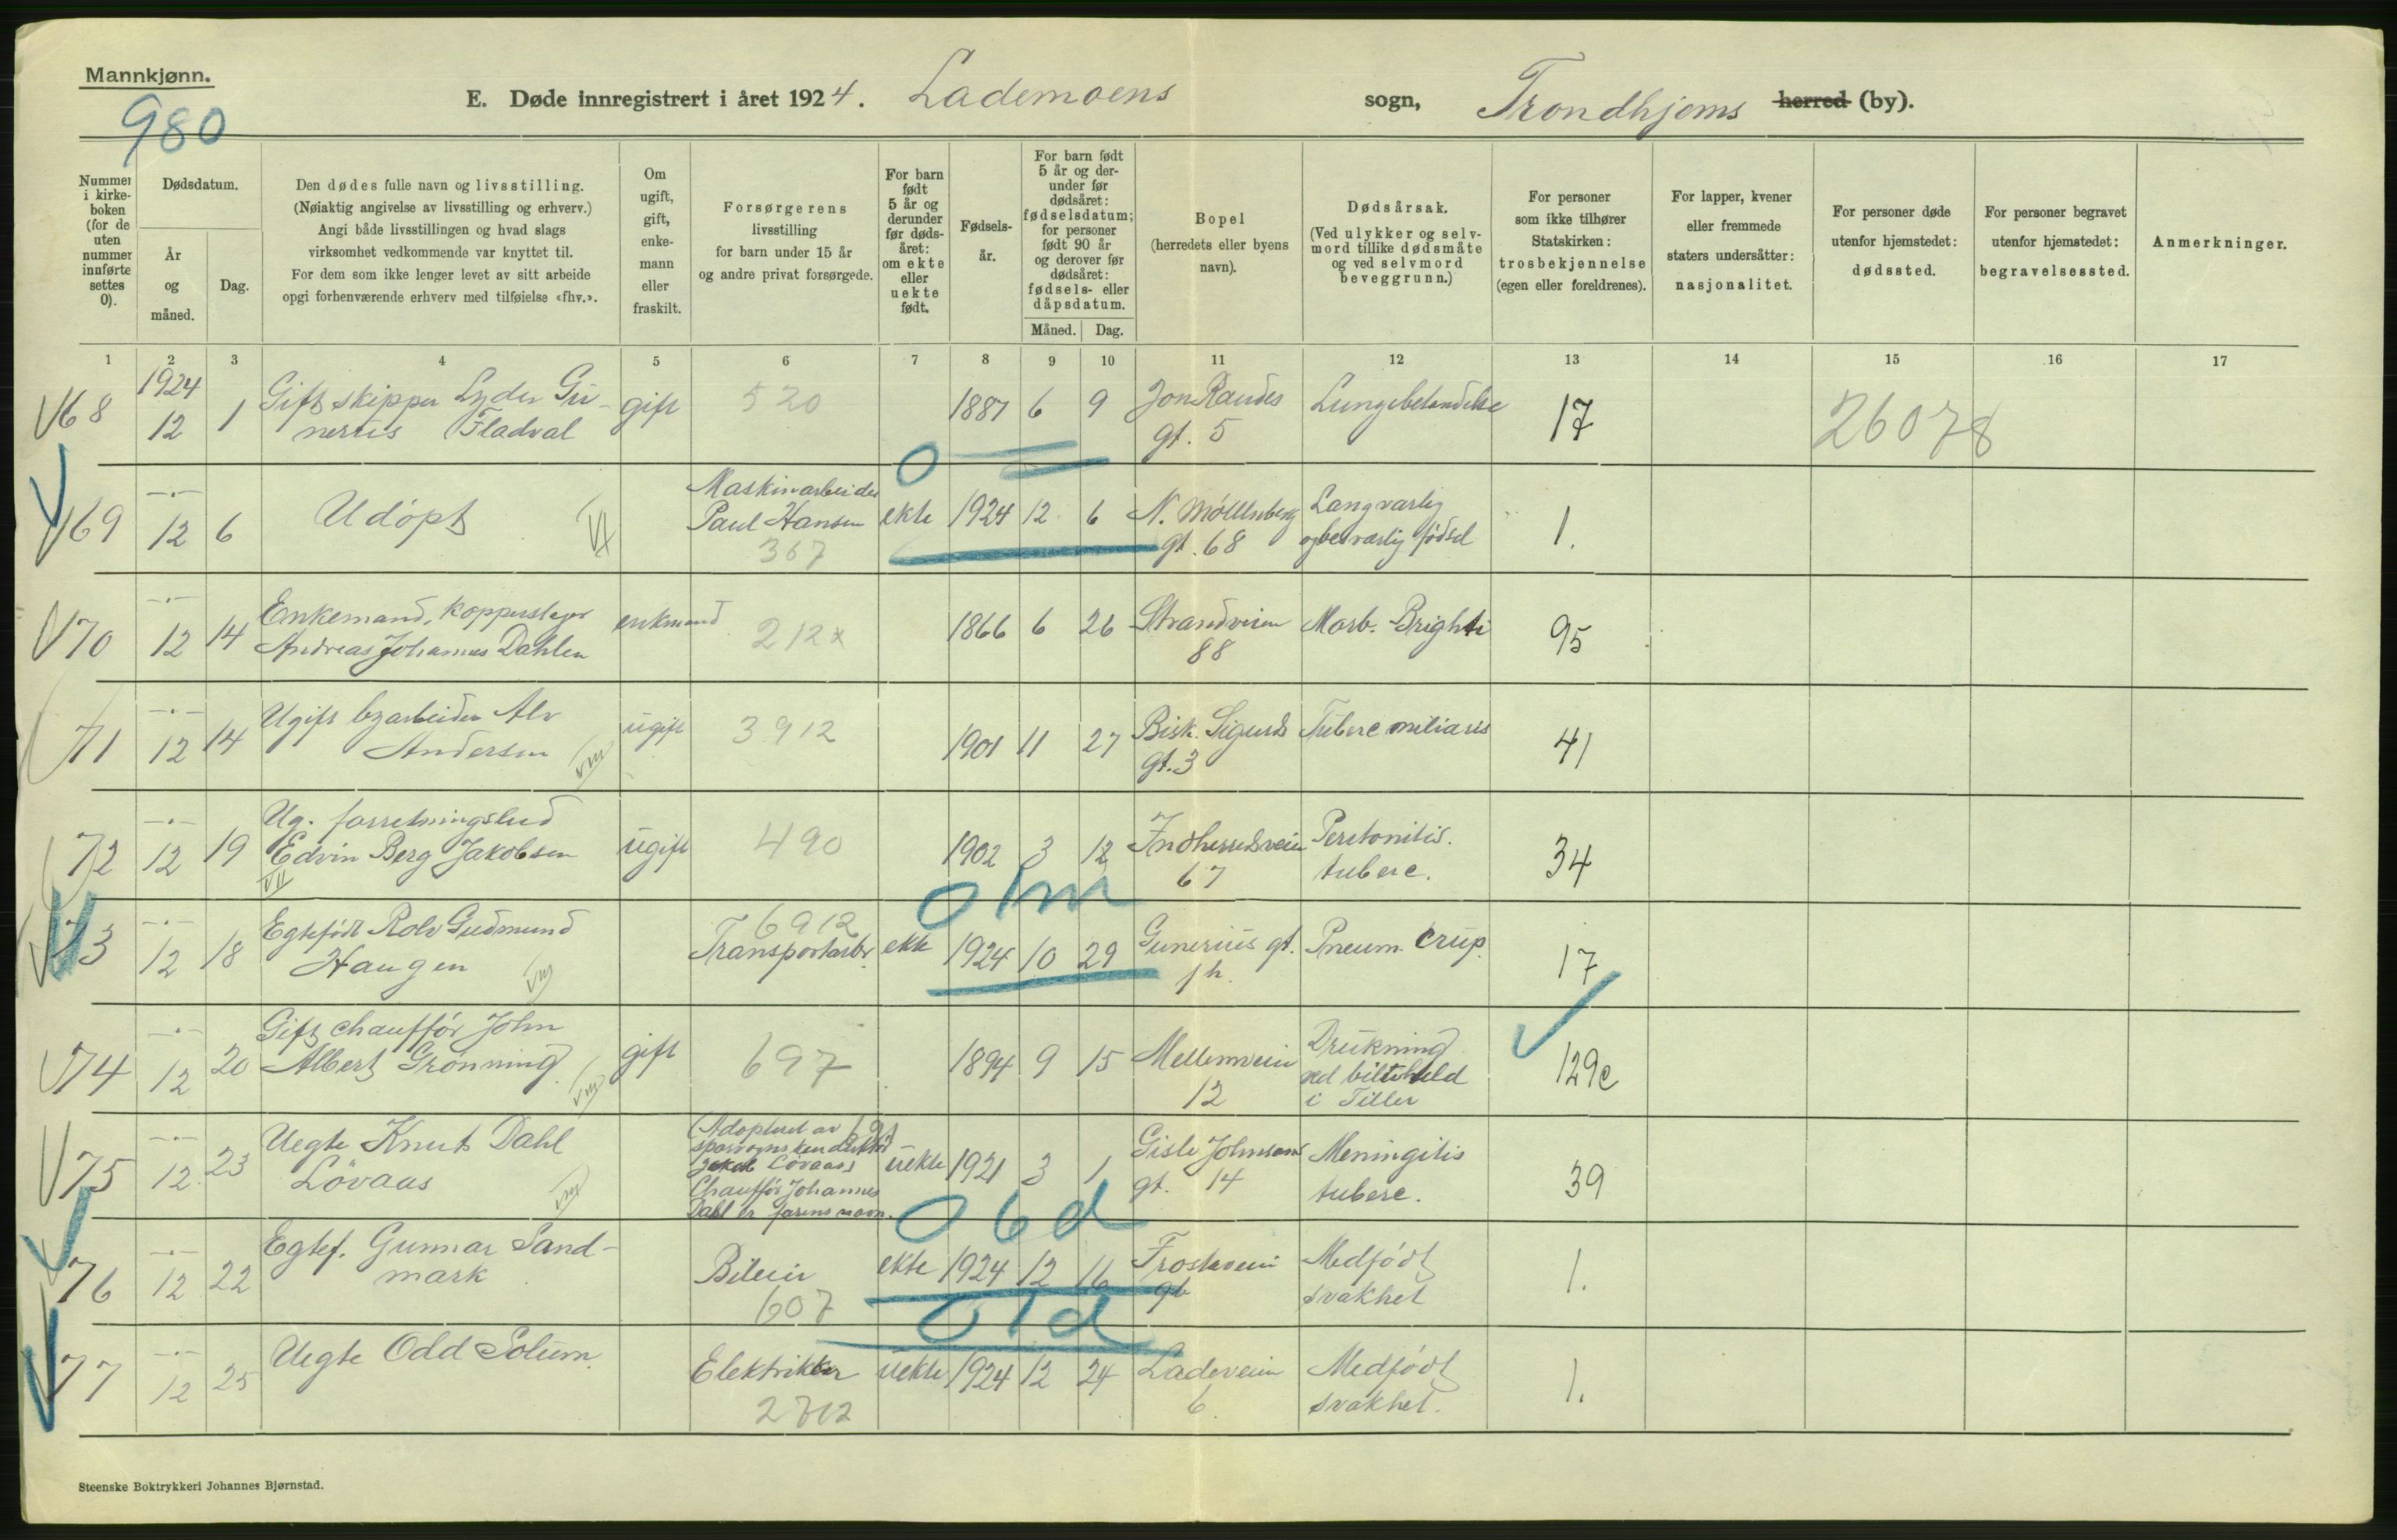 Mannkjønn.
980
E. Døde innregistrert i året 1924. Lademoens sogn, Trondhjems herred (by).
Nummer i kirkeboken (for de uten nummer innførte settes 0).
Dødsdatum.
År og måned.
Dag.
Den dødes fulle navn og livsstilling.
(Nøiaktig angivelse av livsstilling og erhverv.)
Angi både livsstillingen og hvad slags
virksomhet vedkommende var knyttet til.
For dem som ikke lenger levet av sitt arbeide
opgi forhenværende erhverv med tilføielse «fhv.».
Om ugift, gift, enkemann eller fraskilt.
Forsørgerens
livsstilling
for barn under 15 år
og andre privat forsørgede.
For barn født 5 år og derunder før dødsåret: om ekte eller uekte født.
Fødselsår.
For barn født 5 år og derunder før dødsåret: fødselsdatum; for personer født 90 år og derover før dødsåret: fødsels- eller dåpsdatum.
Måned. Dag.
Bopel
(herredets eller byens
navn).
Dødsårsak.
(Ved ulykker og selv-
mord tillike dødsmåte
og ved selvmord
beveggrunn.)
For personer
som ikke tilhører
Statskirken:
trosbekjennelse
(egen eller foreldrenes).
For lapper, kvener
eller fremmede
staters undersåtter:
nasjonalitet.
For personer døde
utenfor hjemstedet:
dødssted.
For personer begravet
utenfor hjemstedet:
begravelsessted.
Anmerkninger.
1 2 3 4 5 6 7 8 9 10 11 12 13 14 15 16 17
68 1924 12 1 Gift skipper Lyder Gu-
nerius Fladval gift 520 1887 6 9 Jon Raudes
gt. 5 Lungebetendelse 17 26078
69 12 6 Udöpt VI Maskinarbeider
Paul Hansen
367 ekte 1924 12 6 N. Möllenberg
gt. 68 Langvarlig
og besværlig födsel 1.
70 12 14 Enkemand, kopperslager
Andreas Johannes Dahlen enkmand 212x 1866 6 26 Strandveien
88 Morb. Brighti 95
71 12 14 Ugift byarbeider Alv
Andersen VIII ugift 3912 1901 11 27 Bisk. Sigurds
gt. 3 Tuberc miliaris 41
72 12 19 Ug. forretningsbud
Edvin Berg Jakobsen
VII ugift 490 1902 3 12 Indherredsveien
67 Peretonitis.
tuberc. 34
73 12 18 Egtefödt Rolv Gudmund
Haugen 6912
Transportarb. ekte 0 1m 1924 10 29 Gunerius gt.
1 h. Pneum. Crup. 17
74 12 20 Gift chauffför John
Albert Grönning gift 697 1894 9 15 Mellemveien
12 Drukning
ved biluheld
i Tiller 129c
75 12 23 Uegte Knut Dahl
Lövaas (Adopteret av
sporvognskonduktör
Lövaas)
Chauffför Johannes
Dahl er farens navn. uekte 1921 3 1 Gisle Johnsons
gt. 14 Meningitis
tuberc. 39
76 12 22 Egtef. Gunnar Sand-
mark Bileier
607 ekte 0 6 d 1924 12 16 Frostaveien
9b Medfödt
svakhet 1.
77 12 25 Uegte Odd Solum. Elektriker
2712 uekte 0 1 d 1924 12 24 Ladeveien
6. Medfödt
svakhet. 1.
Steenske Boktrykkeri Johannes Bjørnstad.